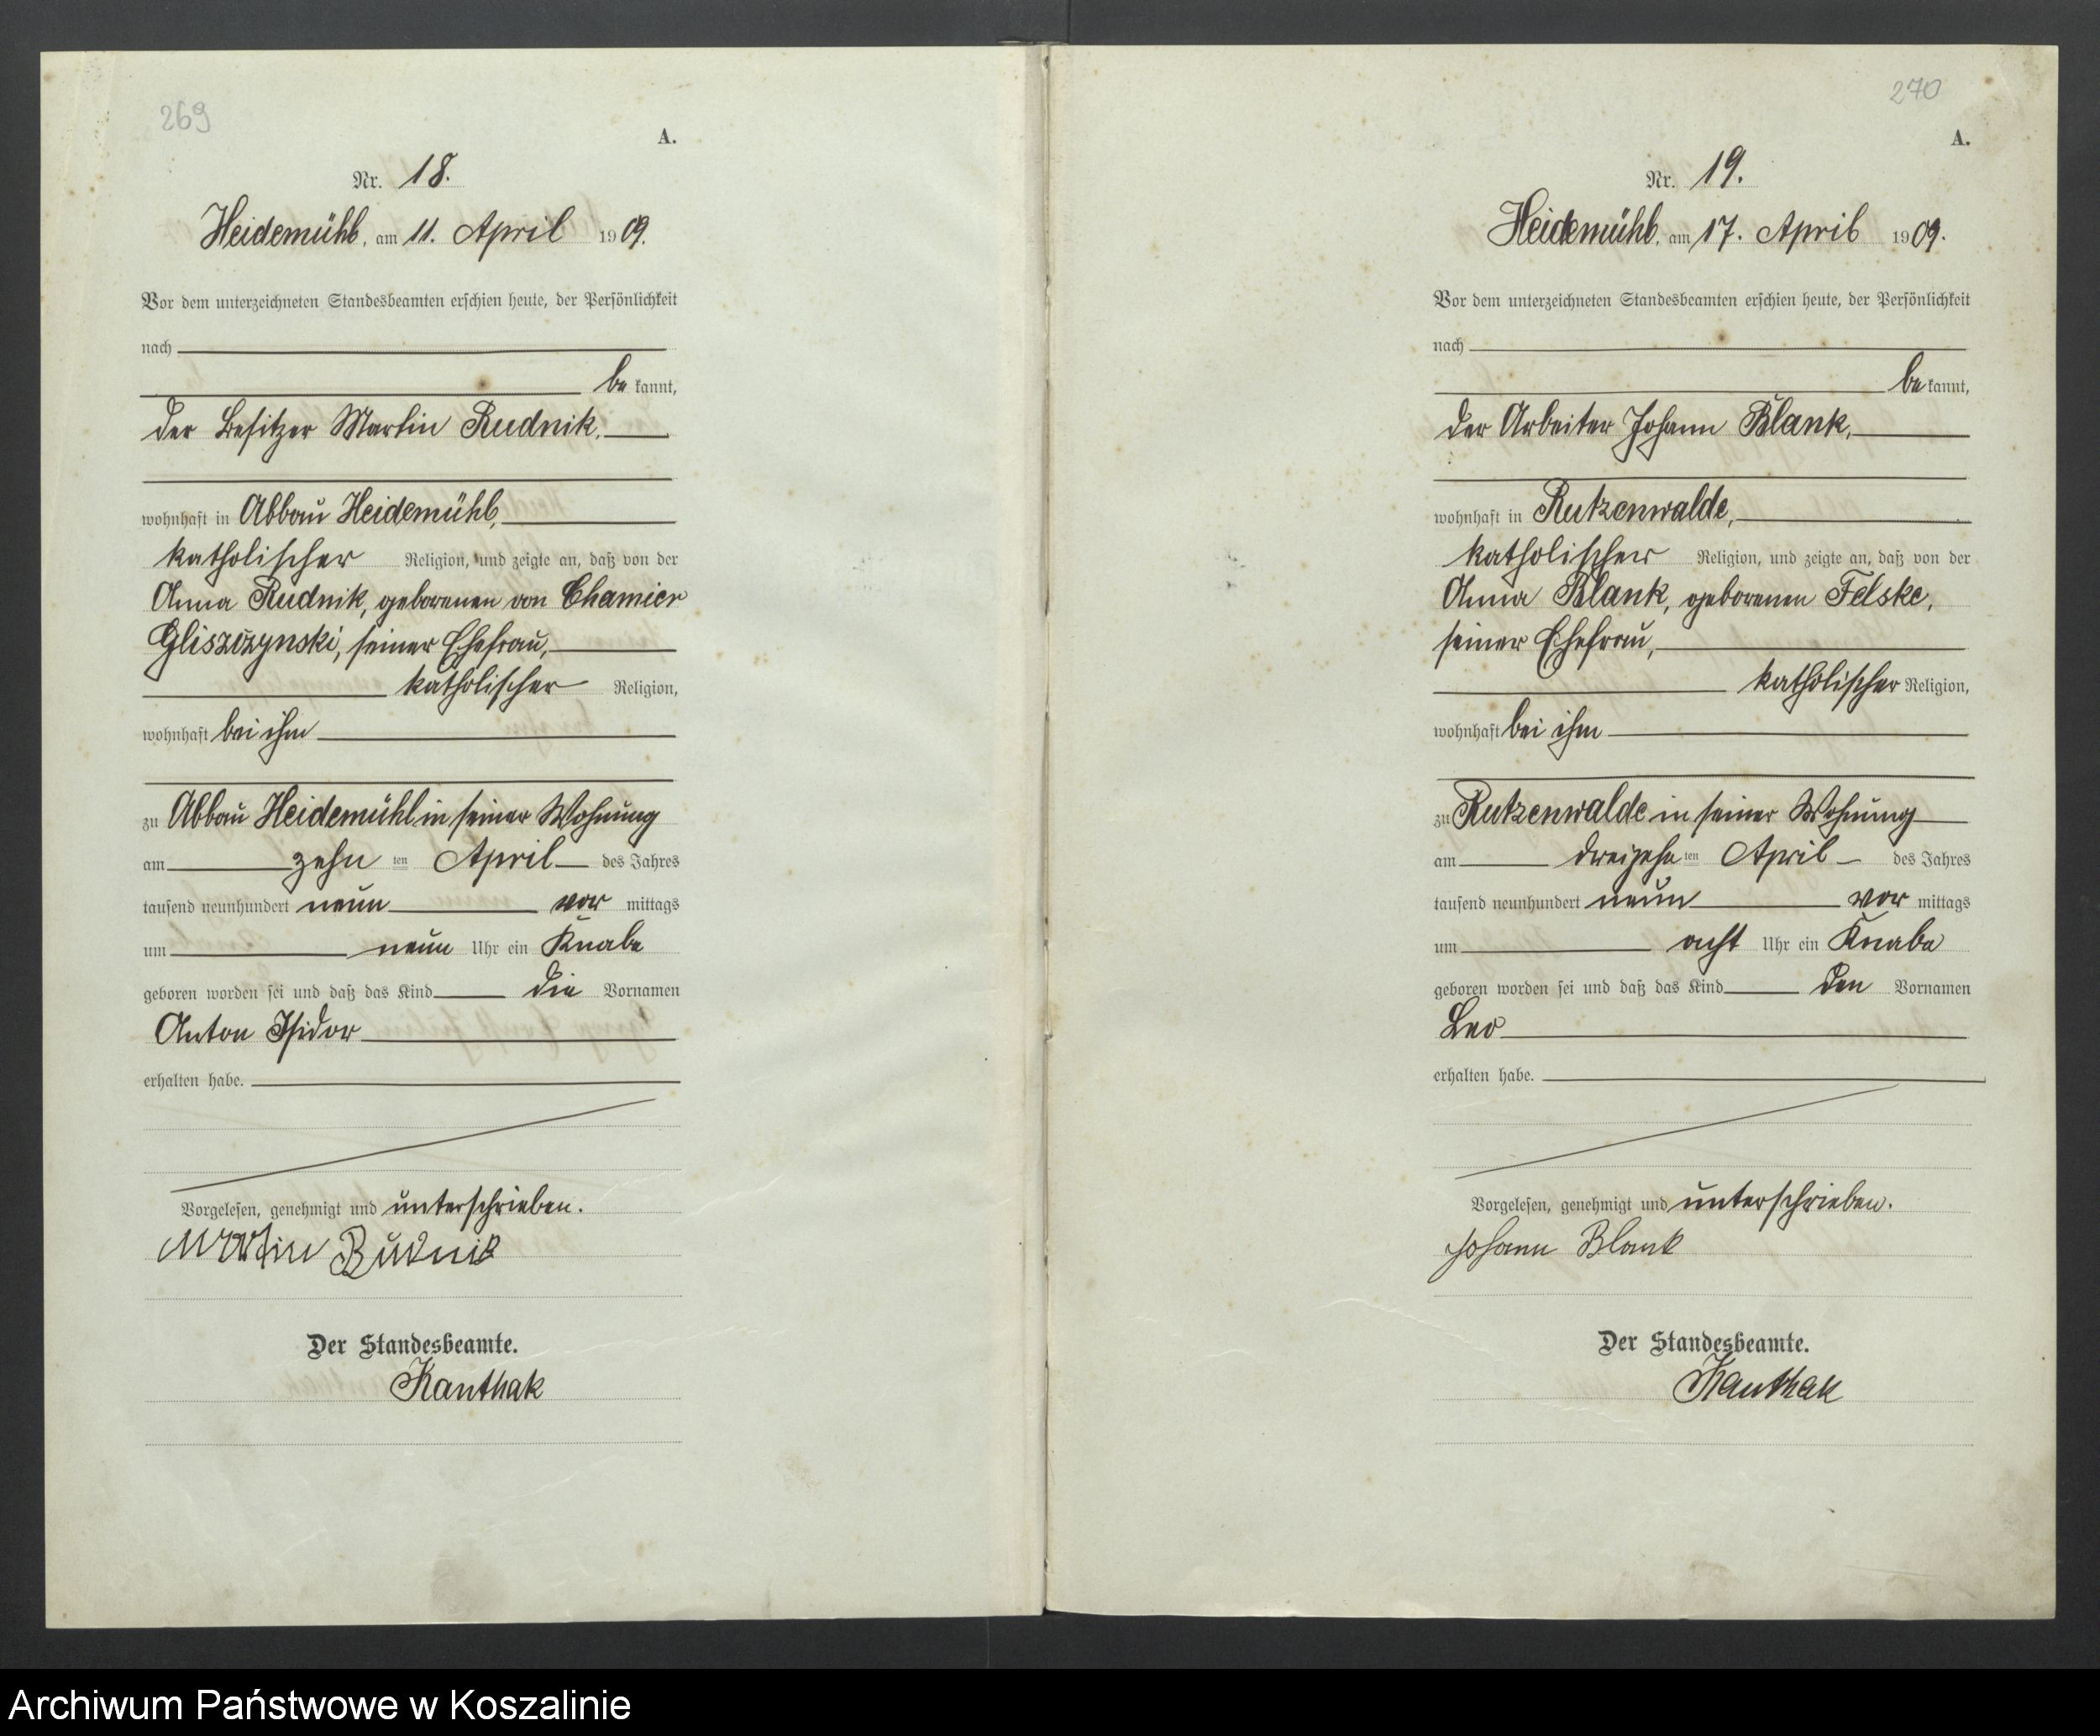 269
A.
Nr. 18.
Heidemühl, am 11. April 1909.
Vor dem unterzeichneten Standesbeamten erschien heute, der Persönlichkeit
nach
bekannt,
der Besitzer Martin Rudnik,
wohnhaft in Abbau Heidemühl,
katholischer Religion, und zeigte an, daß von der
Anna Rudnik, geborenen von Chamier
Gliszczynski, seiner Ehefrau,
katholischer Religion,
wohnhaft bei ihm
zu Abbau Heidemühl in seiner Wohnung
am zehn ten April des Jahres
tausend neunhundert neun vor mittags
um neun Uhr ein Knabe
geboren worden sei und daß das Kind die Vornamen
Anton Isidor
erhalten habe.
Vorgelesen, genehmigt und unterschrieben.
Martin Rudnik
Der Standesbeamte.
Kanthak
270
A.
Nr. 19.
Heidemühl, am 17. April 1909.
Vor dem unterzeichneten Standesbeamten erschien heute, der Persönlichkeit
nach
bekannt,
der Arbeiter Johann Blank,
wohnhaft in Rutzenwalde,
katholischer Religion, und zeigte an, daß von der
Anna Blank, geborenen Felske,
seiner Ehefrau,
katholischer Religion,
wohnhaft bei ihm
zu Rutzenwalde in seiner Wohnung
am dreizehn ten April des Jahres
tausend neunhundert neun vor mittags
um acht Uhr ein Knabe
geboren worden sei und daß das Kind den Vornamen
Leo
erhalten habe.
Vorgelesen, genehmigt und unterschrieben.
Johann Blank
Der Standesbeamte.
Kanthak
Archiwum Państwowe w Koszalinie